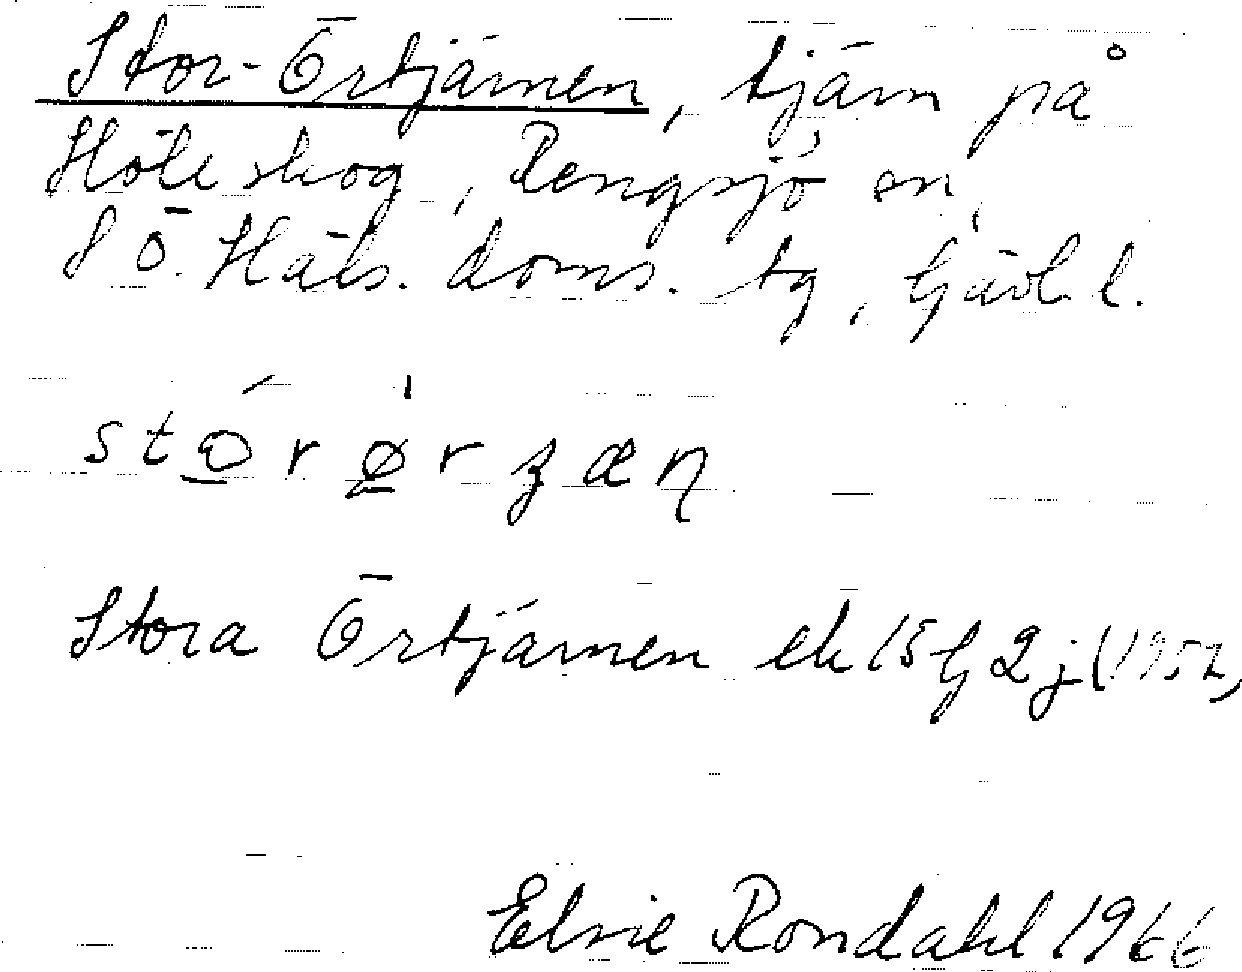 Stor-Örtjärnen, tjärn på
Höle skog, Rengsjö sn,
S Ö. Häls. doms. tg, Gävl. l.
Stora Örtjärnen ek 15G2j (1957)
Elsie Rondahl 1966